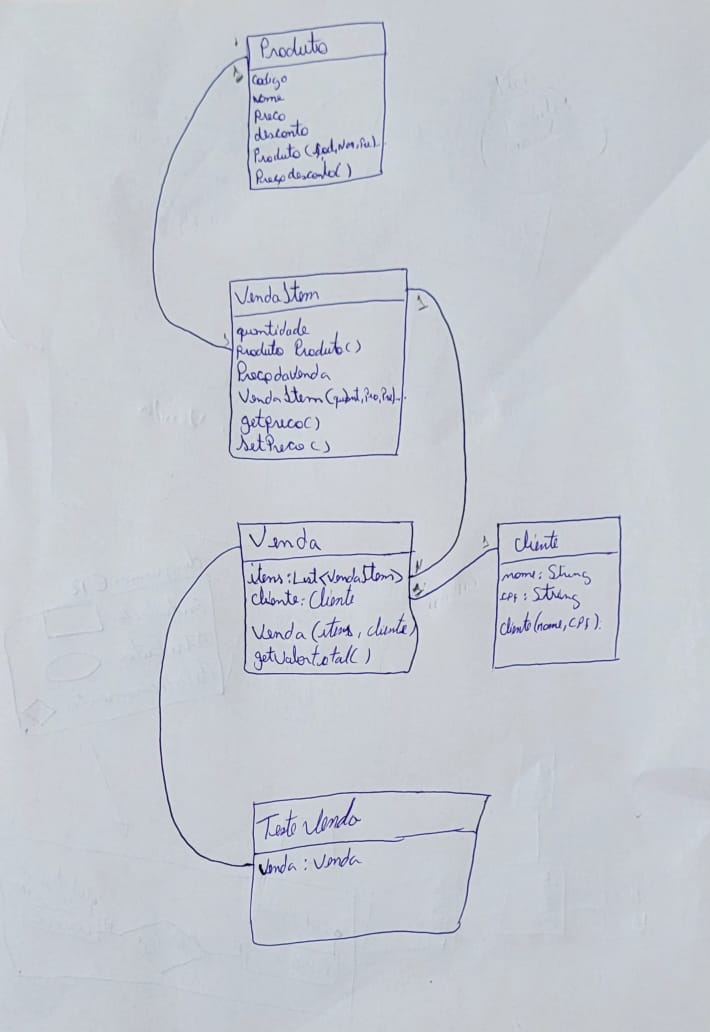 Produto
codigo
Nome
Preco
desconto
Produto (Cod, Nom, Pre)..
Preço desconto( )
1
1
VendaItem
1
quantidade
Produto Produto( )
PreçodaVenda
VendaItem(quant, Pro, Pre)...
getpreco( )
setPreco ( )
Venda
itens: List<VendaItem>
N
cliente: Cliente
Venda (itens, cliente)
getValortotal( )
1
Cliente
nome: String
CPF: String
cliente (nome, CPF).
Teste Venda
Venda : Venda